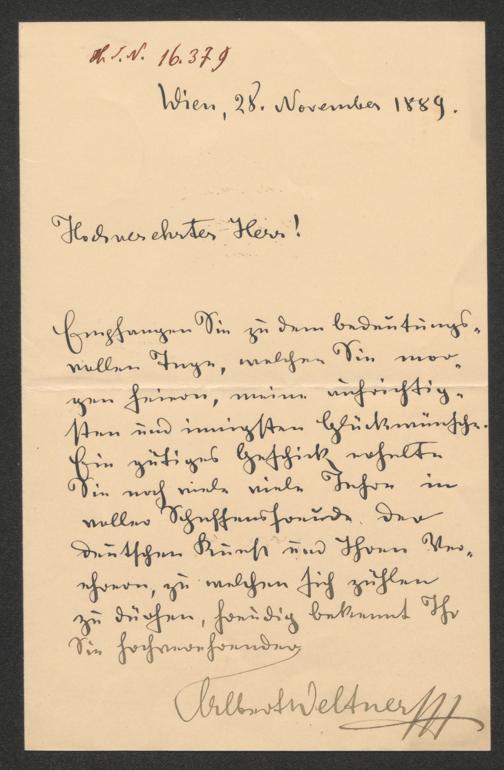 H.I.N. 16.379
Wien, 28. November 1889.
Hochverehrter Herr!
Empfangen Sie zu dem bedeutungs-
vollen Tage, welchen Sie mor-
gen feiern, meine aufrichtig-
sten und innigsten Glückwünsche.
Ein gütiges Geschick erhalte
Sie noch viele viele Jahre in
voller Schaffensfreude der
deutschen Kunst und Ihren Ver-
ehrern, zu welchen sich zählen
zu dürfen, freudig bekennt Ihr
Sie hochverehrender
Albert Weltner